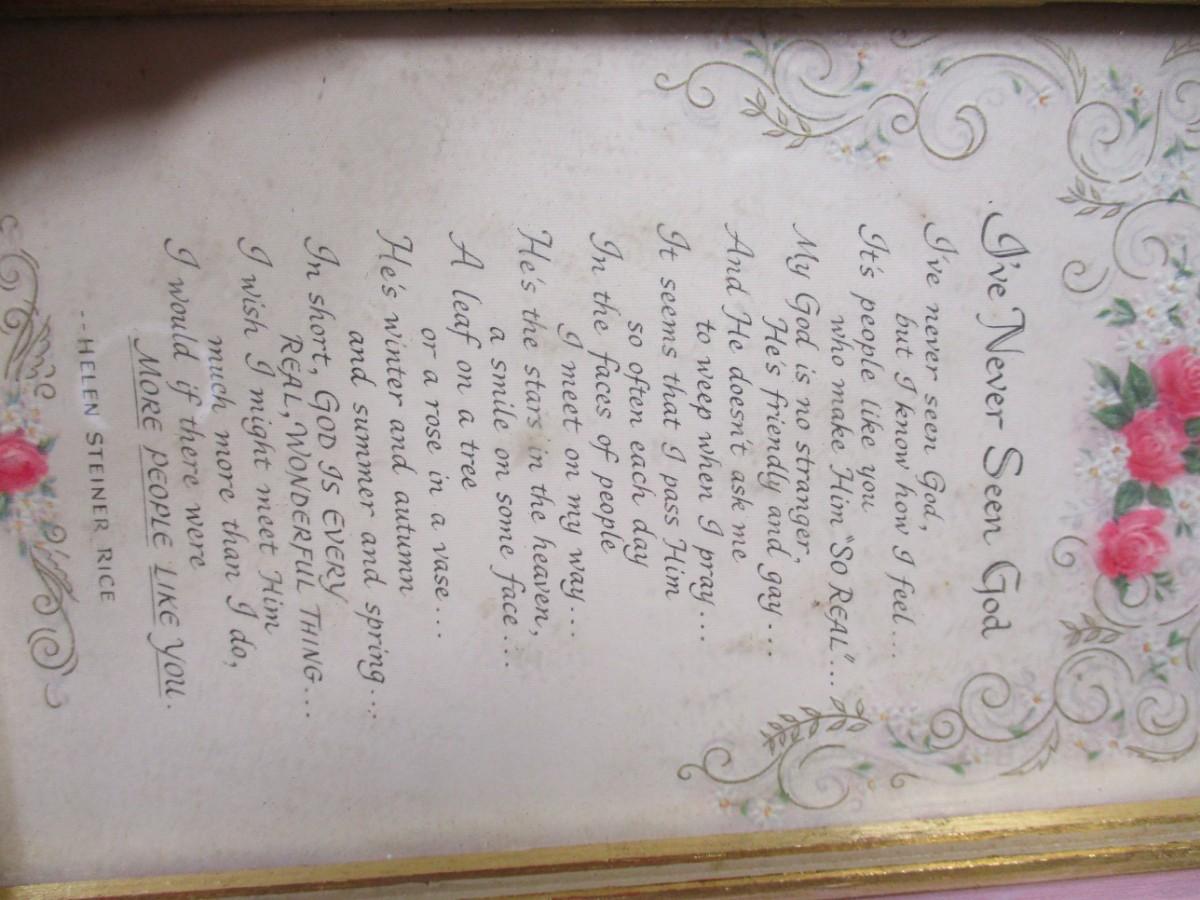 I've Never Seen God
I've never seen God,
but I know how I feel...
It's people like you
who make Him "So REAL"...
My God is no stranger,
He's friendly and gay...
And He doesn't ask me
to weep when I pray...
It seems that I pass Him
so often each day
In the faces of people
I meet on my way...
He's the stars in the heaven,
a smile on some face...
A leaf on a tree
or a rose in a vase...
He's winter and autumn
and summer and spring...
In short, GOD IS EVERY
REAL, WONDERFUL THING...
I wish I might meet Him
much more than I do,
I would if there were
MORE PEOPLE LIKE YOU.
--HELEN STEINER RICE